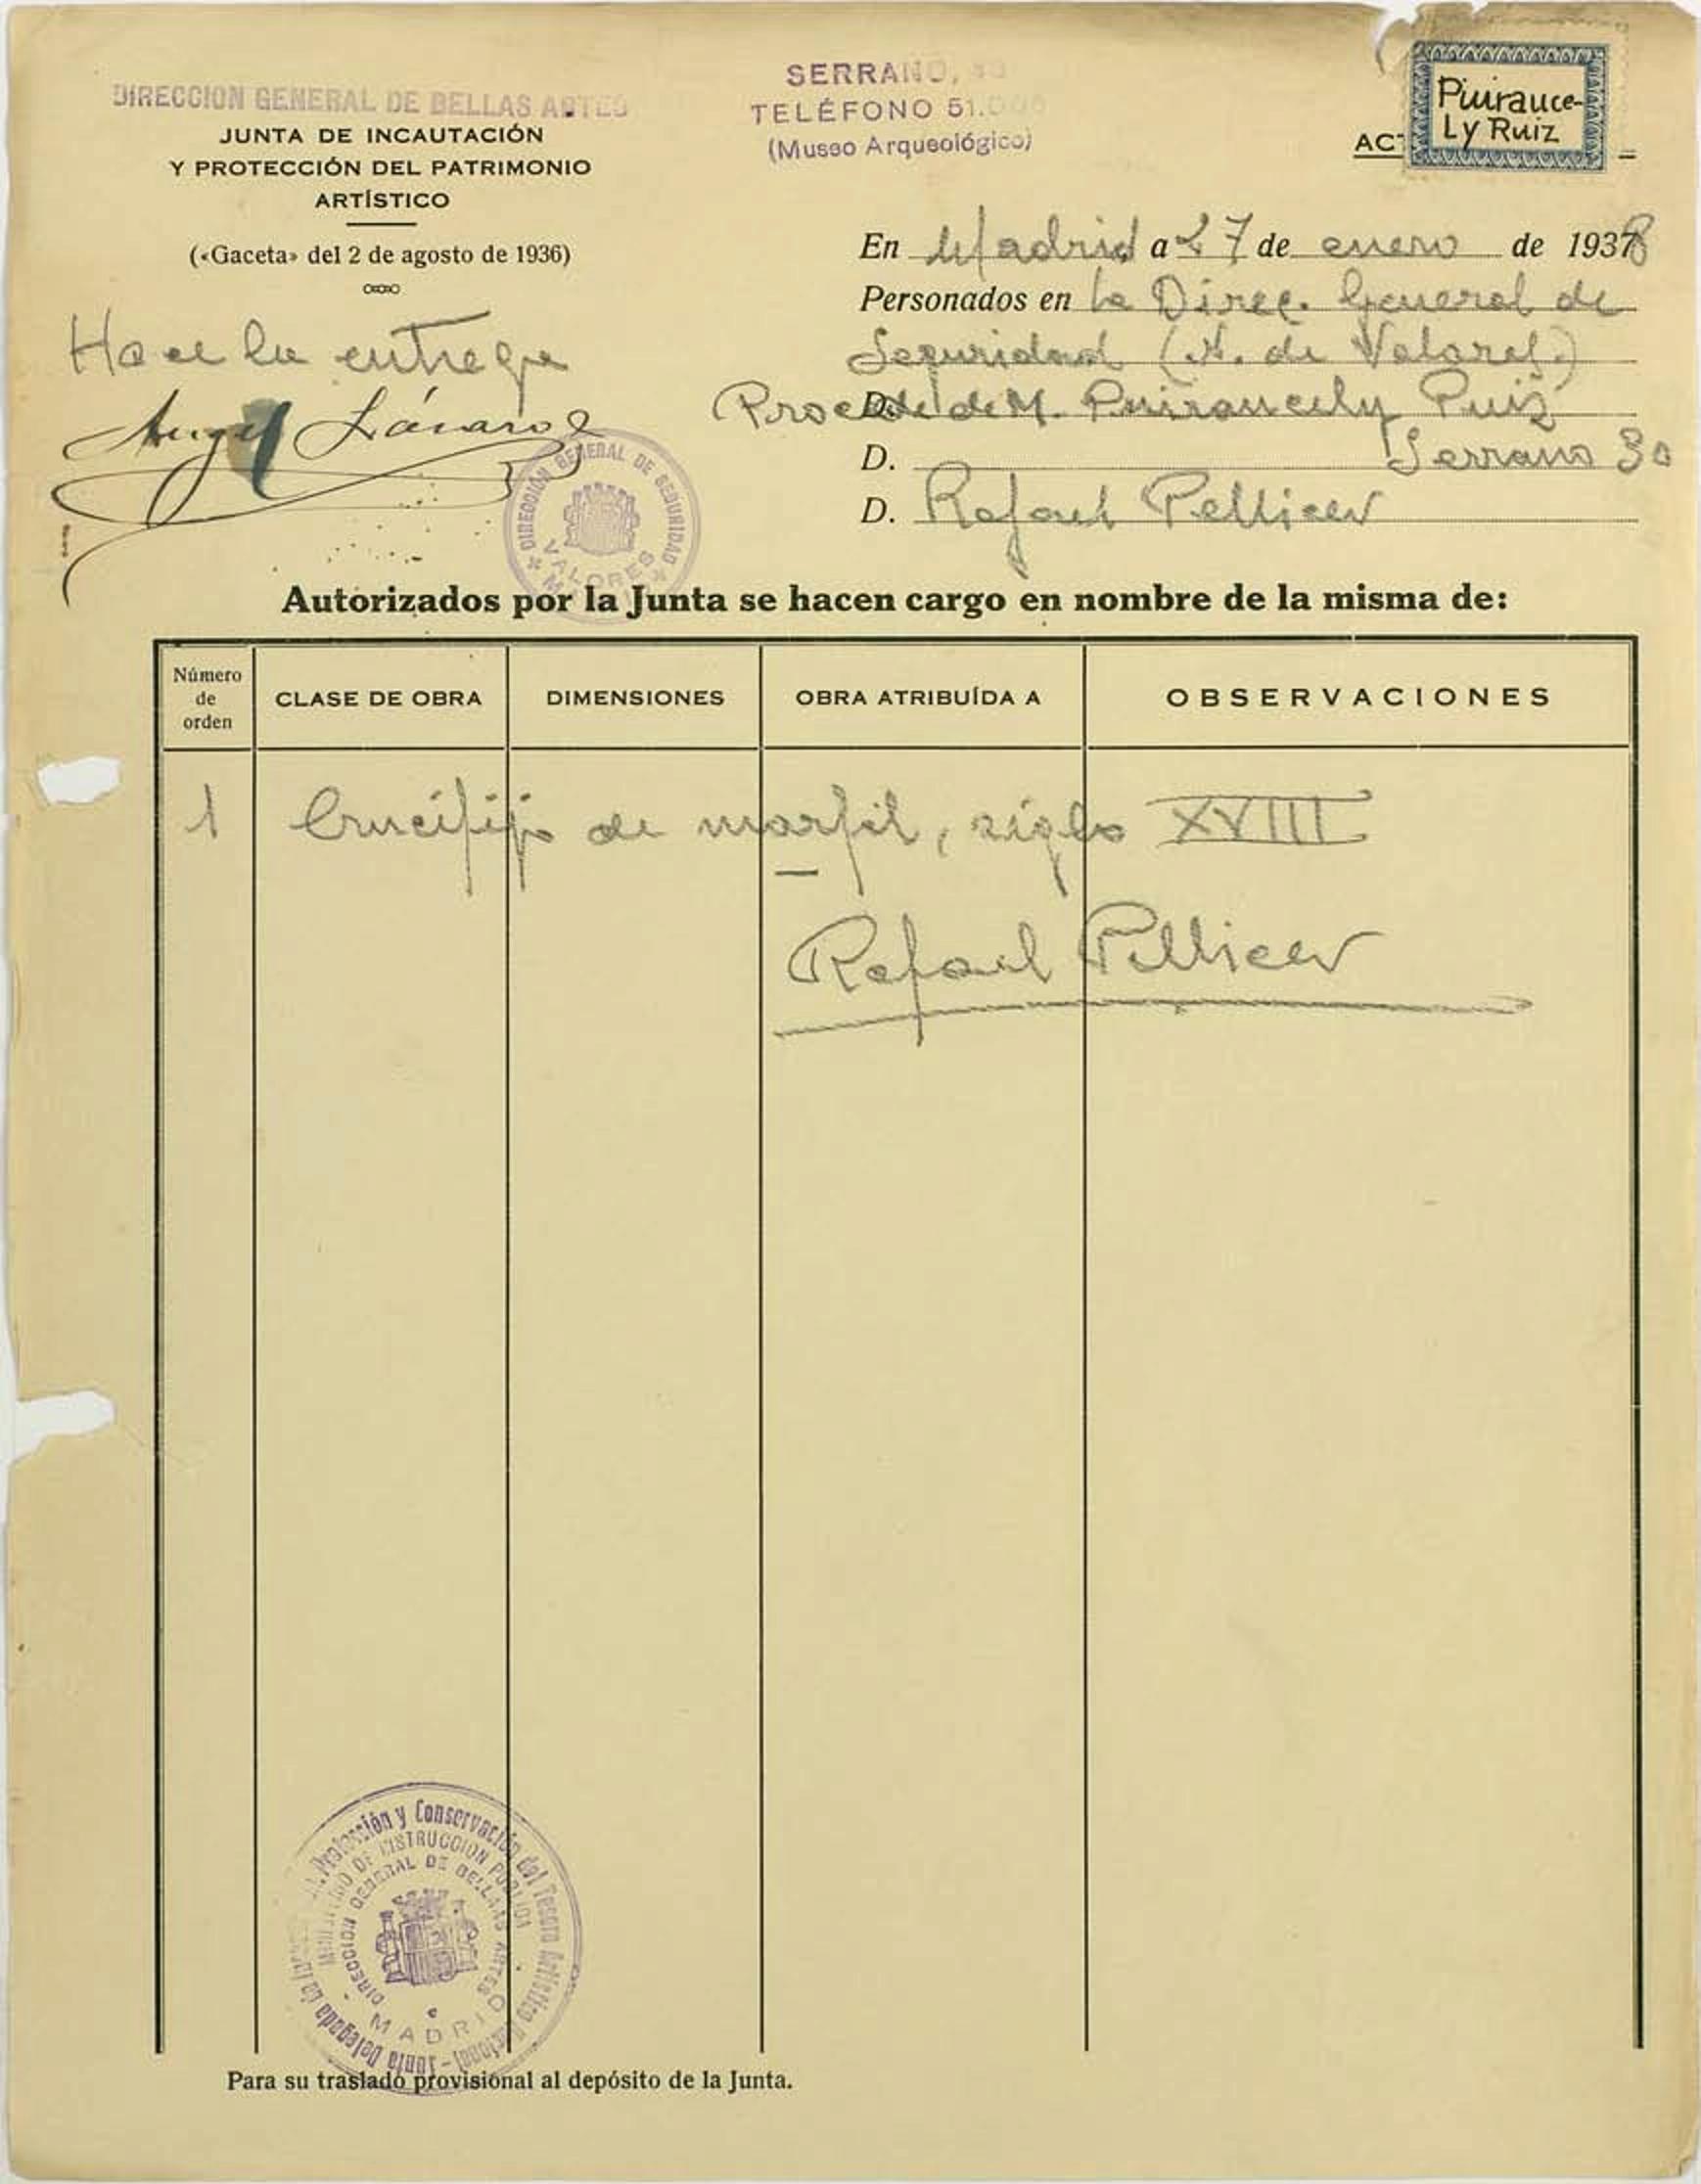 DIRECCION GENERAL DE BELLAS ARTES
JUNTA DE INCAUTACIÓN
Y PROTECCIÓN DEL PATRIMONIO
ARTÍSTICO
(«Gaceta» del 2 de agosto de 1936)
SERRANO,
TELÉFONO 51.
(Museo Arqueológico)
AC
Piurauce-
Ly Ruiz
En Madrid a 27 de enero de 1938
Personados en la Direc. General de
Seguridad (N. de Valores.)
Procede de M. Puirancely Ruiz
D. Serrano 30
D. Rafael Pellicer
Hace la entrega
Angel Lázaro
DIRECCIÓN GENERAL DE SEGURIDAD
VALORES
Autorizados por la Junta se hacen cargo en nombre de la misma de:
Número de orden CLASE DE OBRA DIMENSIONES OBRA ATRIBUÍDA A OBSERVACIONES
1 Crucifijo de marfil, siglo XVIII
Rafael Pellicer
Protección y Conservación del Tesoro Artístico Nacional - Junta Delegada de
DE INSTRUCCION PUBLICA
DIRECCION GENERAL DE BELLAS ARTES
MADRID
Para su traslado provisional al depósito de la Junta.